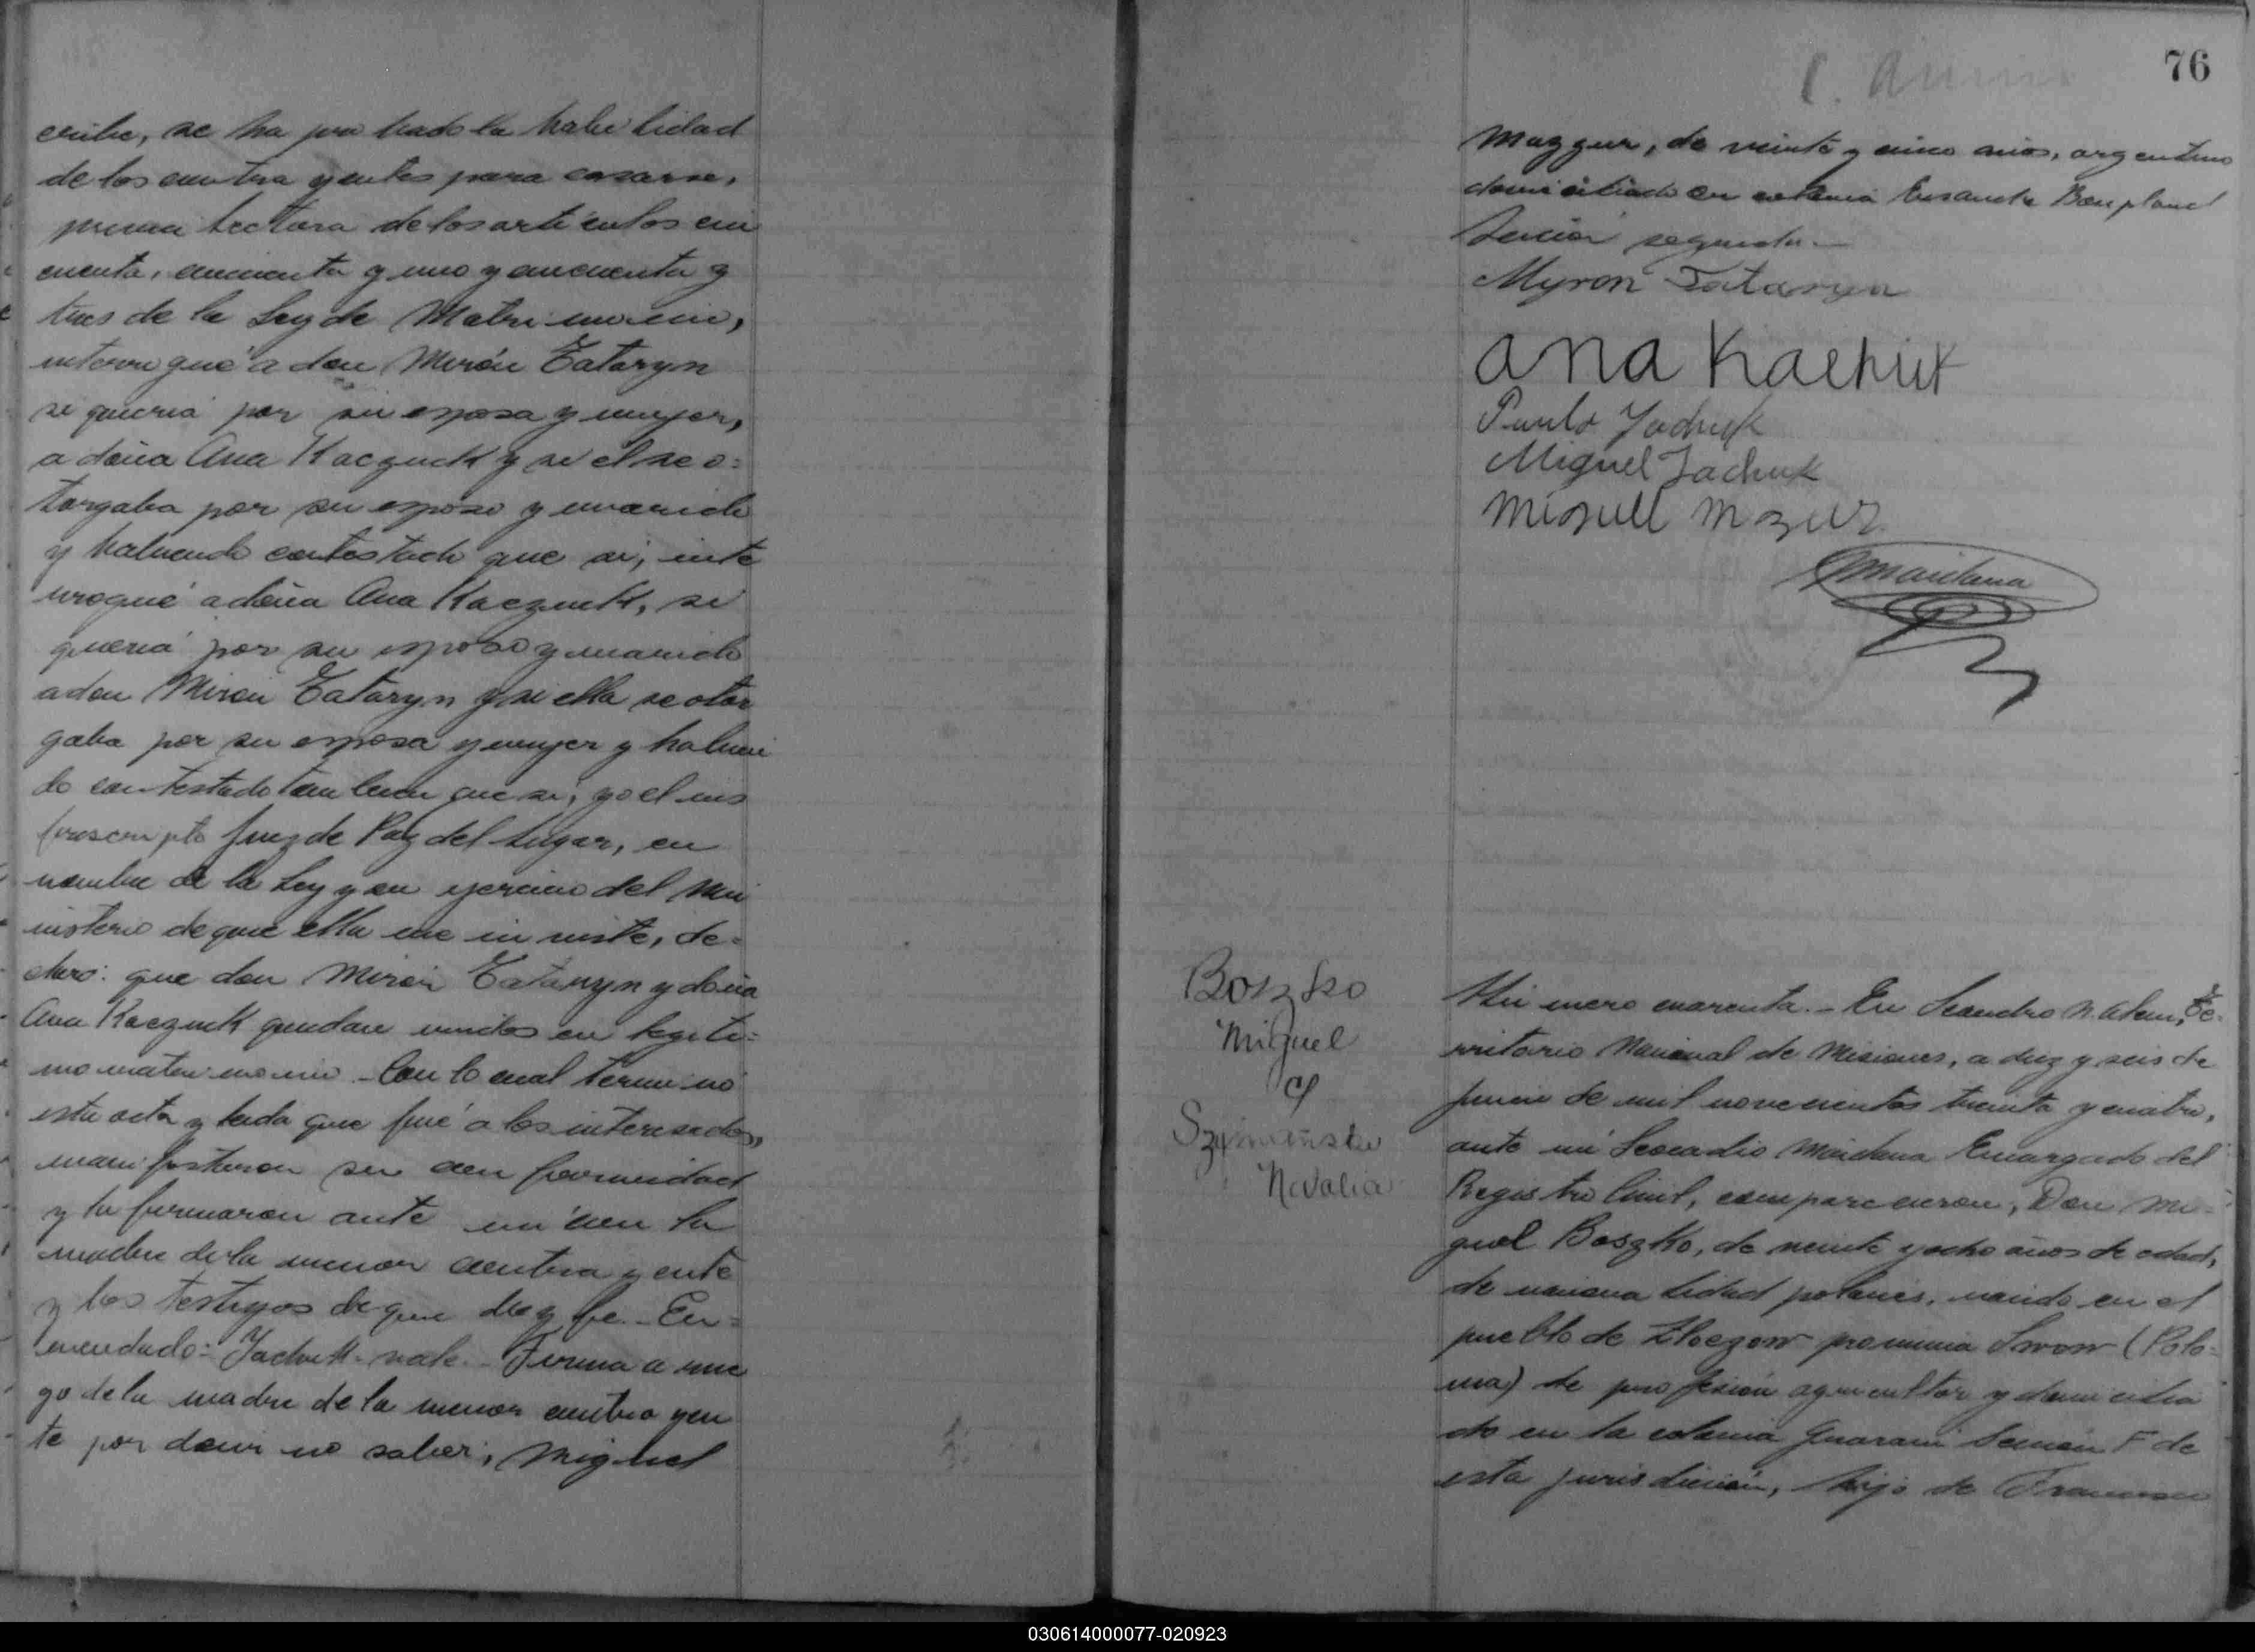 cribe, se ha probado la habilidad
de los contrayentes para casarse,
previa lectura de los artículos cin
cuenta, cincuenta y uno y cincuenta y
tres de la Ley de Matrimonio,
interrogué a don Mirón Tataryn
si quería por su esposa y mujer,
a doña Ana Kaczuck y si él se o=
torgaba por su esposo y marido
y habiendo contestado que si, inte
rrogué a doña Ana Kaczuck, si
quería por su esposo y marido
a don Mirón Tataryn y si ella se otor
gaba por su esposa y mujer y habien
do contestado tambien que si, yo el ins
frascripto Juez de Paz del Lugar, en
nombre de la Ley y en ejercicio del Mi
nisterio de que ella me inviste, de=
claro: que don Mirón Tataryn y doña
Ana Kaczuck quedan unidos en legíti=
mo matrimonio.- Con lo cual terminó
esta acta y leida que fué a los interesados,
manifestaron su conformidad
y la firmaron ante mí con la
madre de la menor contrayente
y los testigos de que doy fe.- En=
mendado: Jachuk= vale.- Firma a rue
go de la madre de la menor contrayen
te por decir no saber, Miguel
76
Mazzur, de veinte y cinco años, argentino
domiciliado en colonia Ensanche Bonpland
Sección segunda.-
Myron Tataryn
Ana Kachuk
Paulo Jachuk
Miguel Jachuk
Miguell Mazur
Maidana
Boszko
Miguel
y
Szymañski
Natalia
Mil nuero cuarenta.- En Leandro N. Alem, Te=
rritorio Nacional de Misiones, a diez y seis de
Junio de mil novecientos treinta y cuatro,
ante mí Leocadio Maidana Encargado del
Registro Civil, comparecieron, Don Mi=
guel Boszko, de veinte y ocho años de edad,
de nacionalidad polanes, nacido en el
pueblo de Zloczow provincia Lwow (Polo=
nia) de profesión agricultor y domicilia
do en la colonia Guaraní Sección F de
esta jurisdicción, hijo de Francisco
030614000077-020923